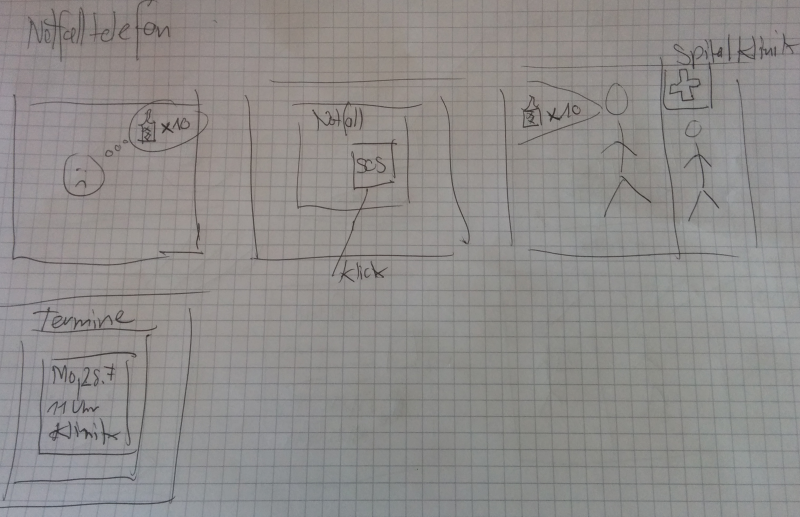 Notfalltelefon
x10
Notfall
SOS
Klick
x10
Spital Klinik
Termine
Mo, 28.7
11 Uhr
Klinik